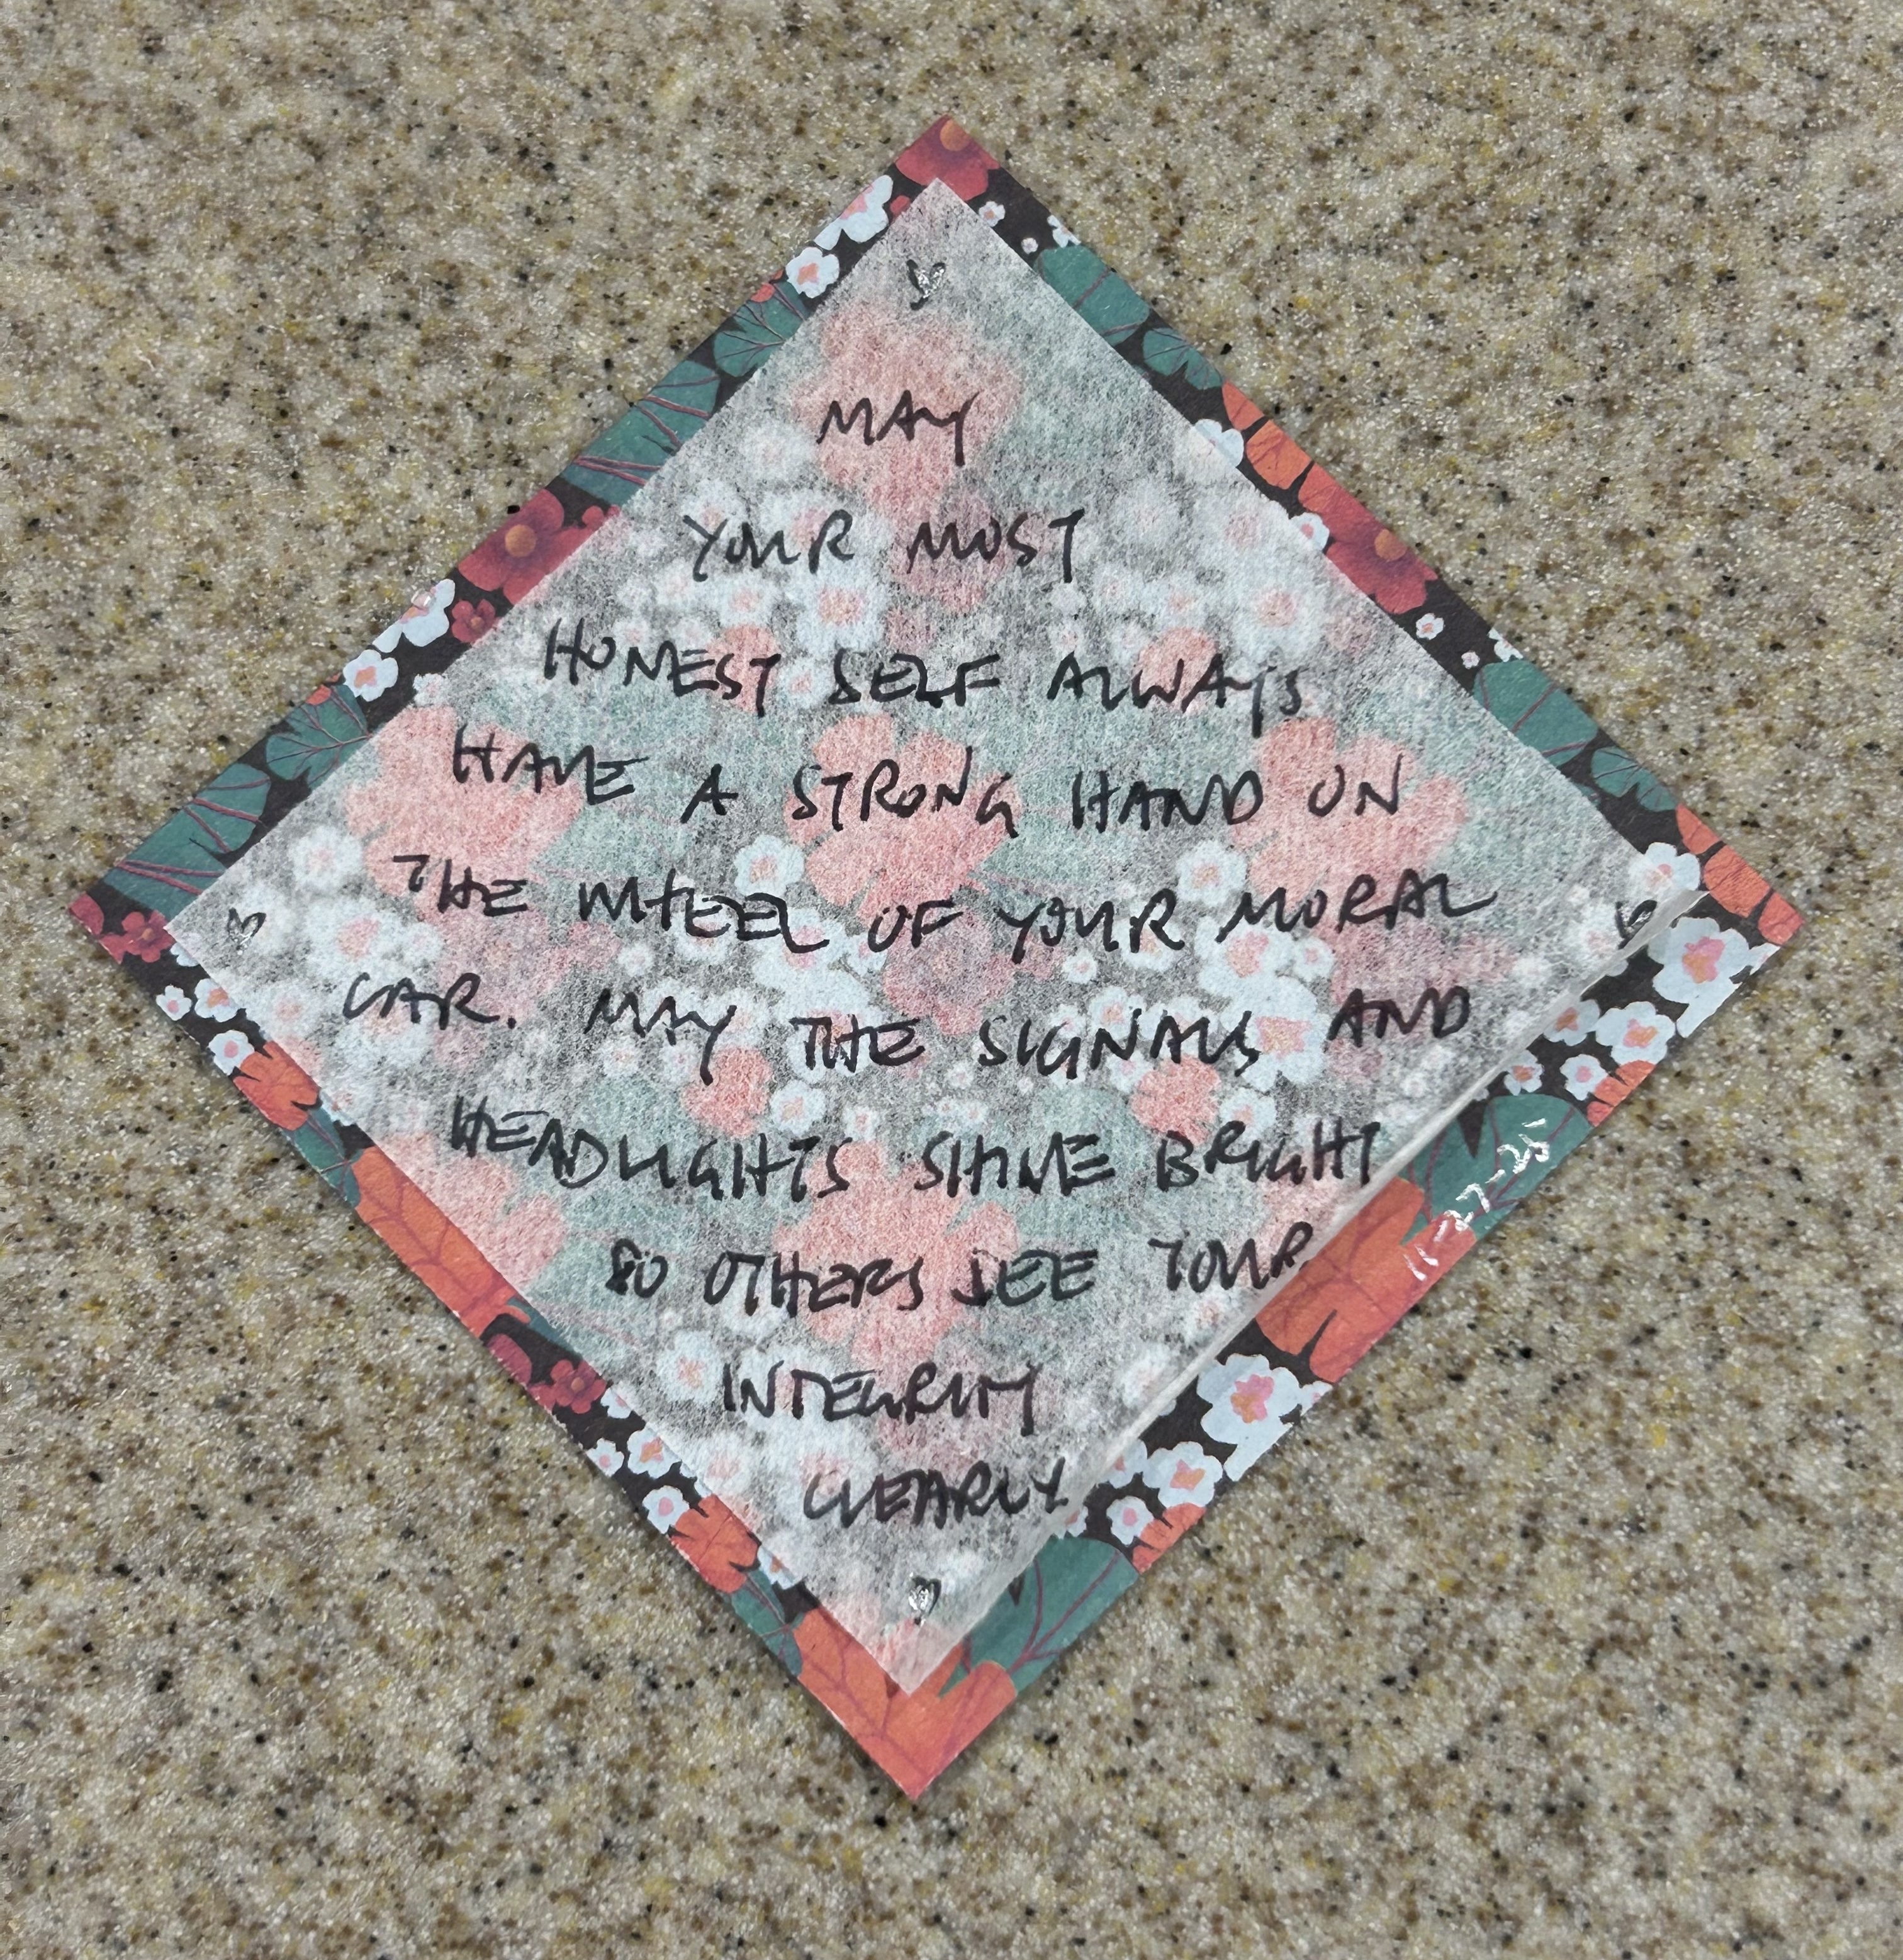 MAY
YOUR MOST
HONEST SELF ALWAYS
HAVE A STRONG HAND ON
THE WHEEL OF YOUR MORAL
CAR. MAY THE SIGNALS AND
HEADLIGHTS SHINE BRIGHT
SO OTHERS SEE YOUR
INTEGRITY
CLEARLY.
11-7-25